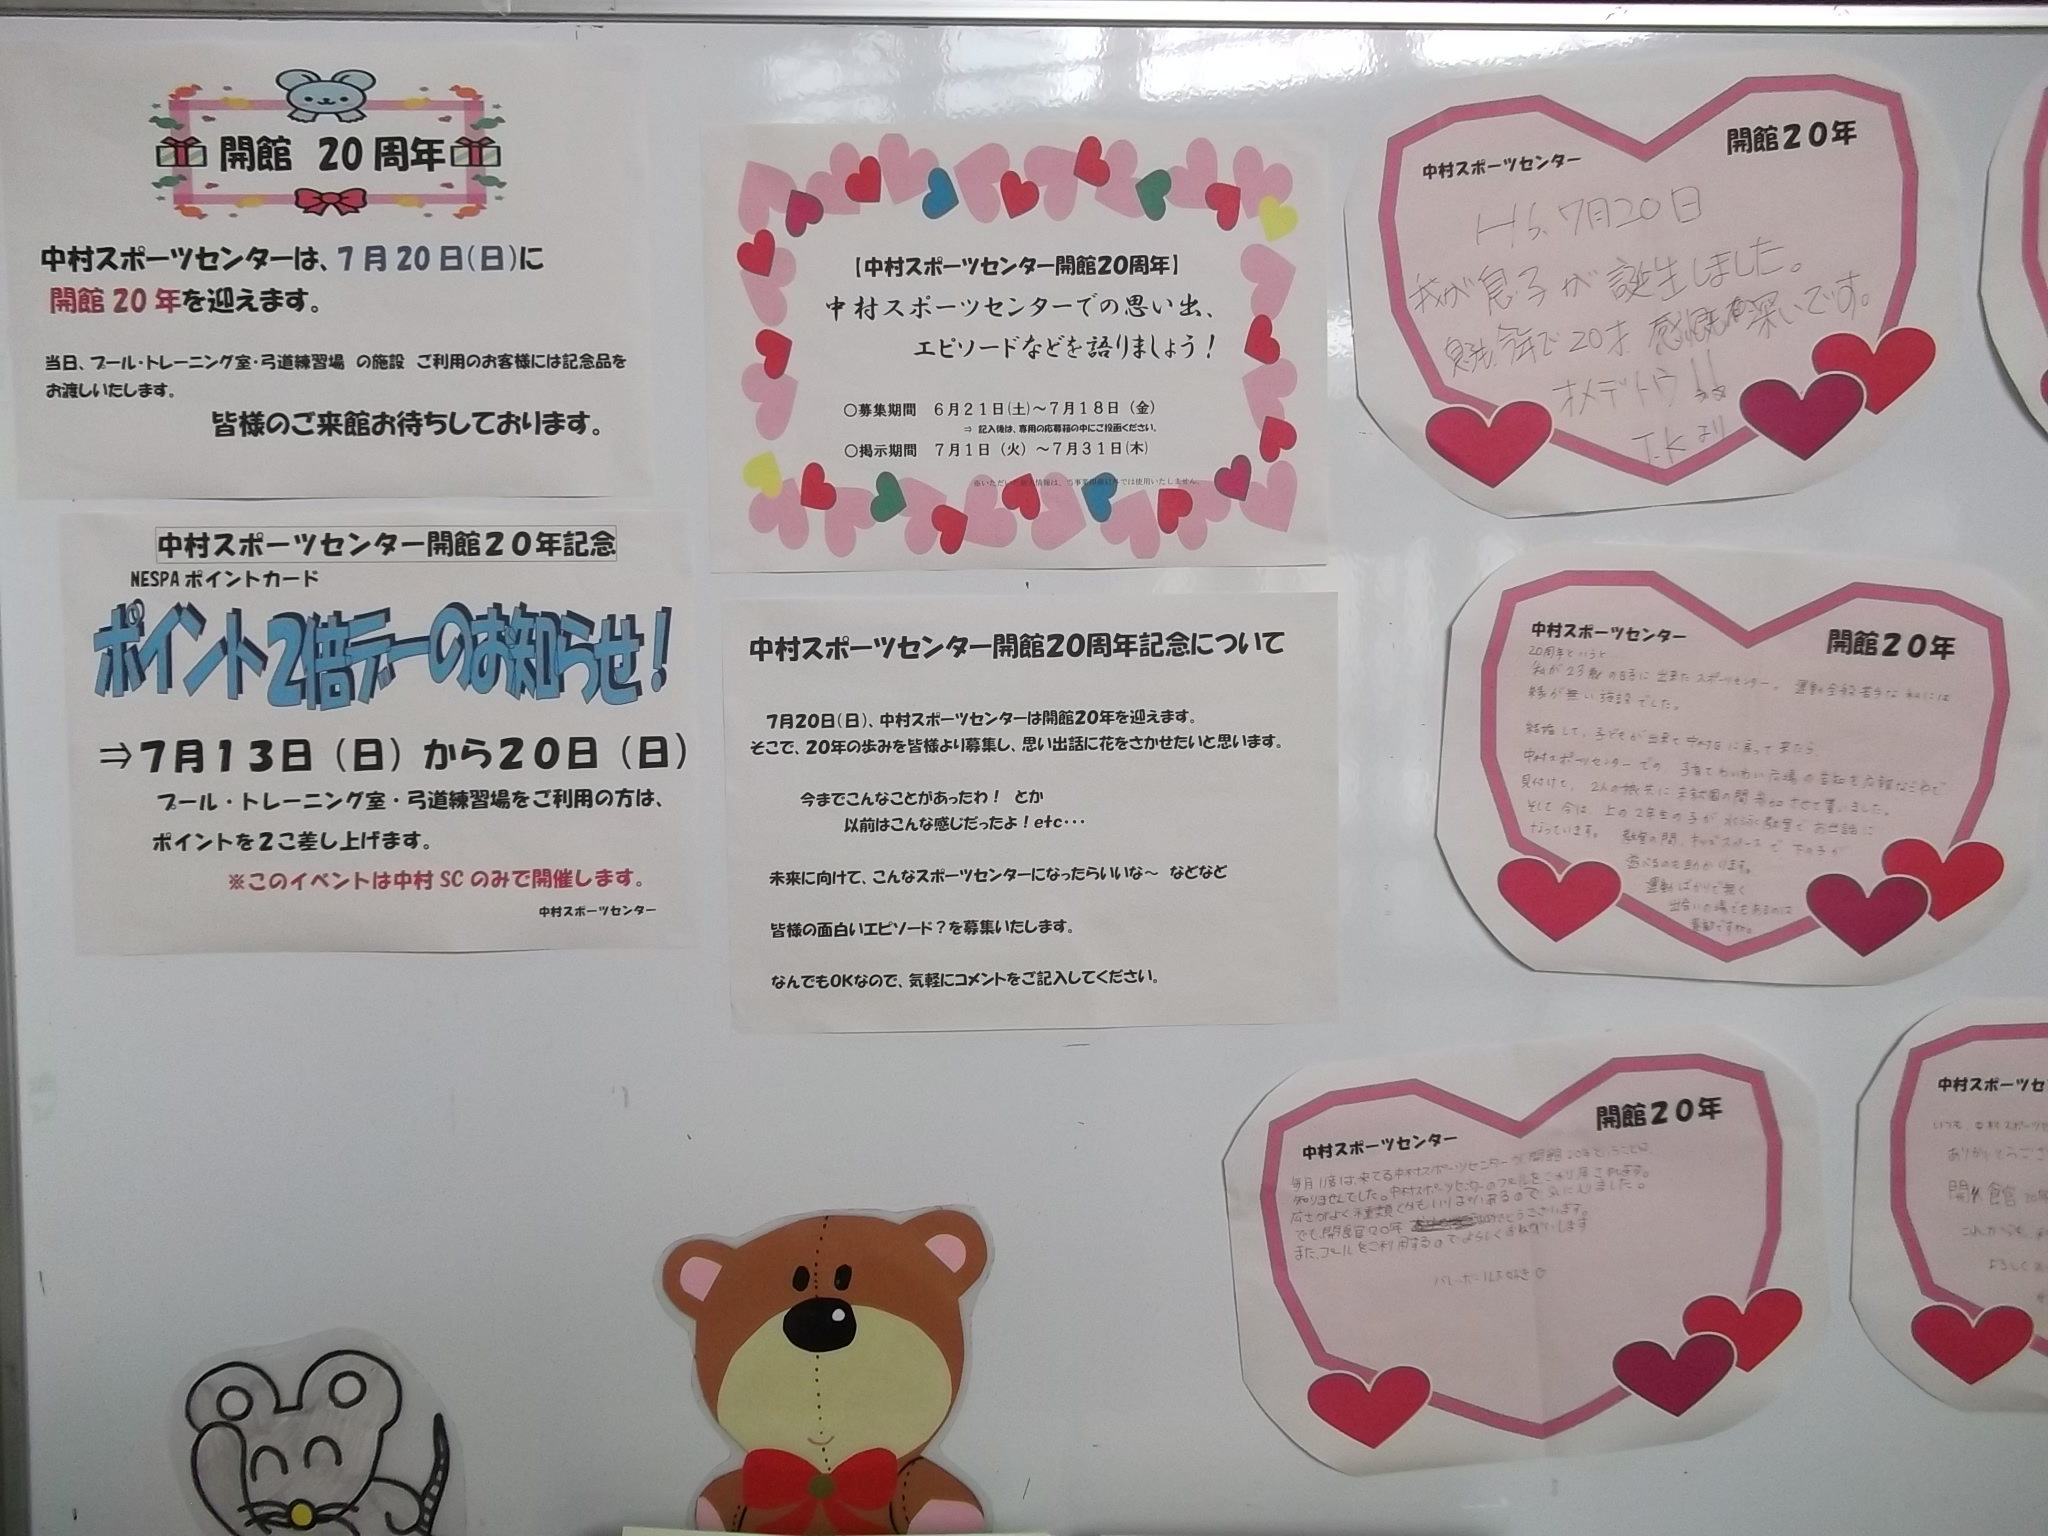 開館 20 周年
中村スポーツセンターは、7月20日(日)に
開館20年を迎えます。
当日、プール・トレーニング室・弓道練習場 の施設 ご利用のお客様には記念品を
お渡しいたします。
皆様のご来館お待ちしております。
中村スポーツセンター開館20年記念
NESPAポイントカード
ポイント2倍デーのお知らせ!
⇒7月13日(日)から20日(日)
プール・トレーニング室・弓道練習場をご利用の方は、
ポイントを2こ差し上げます。
※このイベントは中村SCのみで開催します。
中村スポーツセンター
【中村スポーツセンター開館20周年】
中村スポーツセンターでの思い出、
エピソードなどを語りましょう!
○募集期間 6月21日(土)~7月18日(金)
⇒ 記入後は、専用の応募箱の中にご投函ください。
○掲示期間 7月1日(火)~7月31日(木)
中村スポーツセンター開館20周年記念について
7月20日(日)、中村スポーツセンターは開館20年を迎えます。
そこで、20年の歩みを皆様より募集し、思い出話に花をさかせたいと思います。
今までこんなことがあったわ! とか
以前はこんな感じだったよ!etc・・・
未来に向けて、こんなスポーツセンターになったらいいな~ などなど
皆様の面白いエピソード?を募集いたします。
なんでもOKなので、気軽にコメントをご記入してください。
中村スポーツセンター
開館20年
7月20日
我が息子が誕生しました。
息子も今年で20才 感慨深いです。
オメデトウ!!
T.Kより
中村スポーツセンター
開館20年
20周年というと
私が23歳の時に出来たスポーツセンター。運動全般苦手な私には
縁が無い施設でした。
結婚して、子どもが出来て中村区に戻って来たら
中村スポーツセンターでの 子育てわいわい広場の告知を広報なごやで
見付けて、2人の娘共に未就園の間参加させて貰いました。
そして今は、上の2年生の子が水泳教室でお世話に
なっています。 教室の間、キッズスペースで下の子が
遊べるのも助かります。
運動ばかりで無く
出会いの場でもあるのは
素敵ですね。
中村スポーツセンター
開館20年
毎月1度は来てる中村スポーツセンターが開館20年ということは
知りませんでした。中村スポーツセンターのプールを
でも、開館20年
また、プールをご利用するのでよろしくおねがいします
中村スポーツセ
いつも、中村スポーツセ
ありがとうござ
開館20周
これからも、
よろしくお